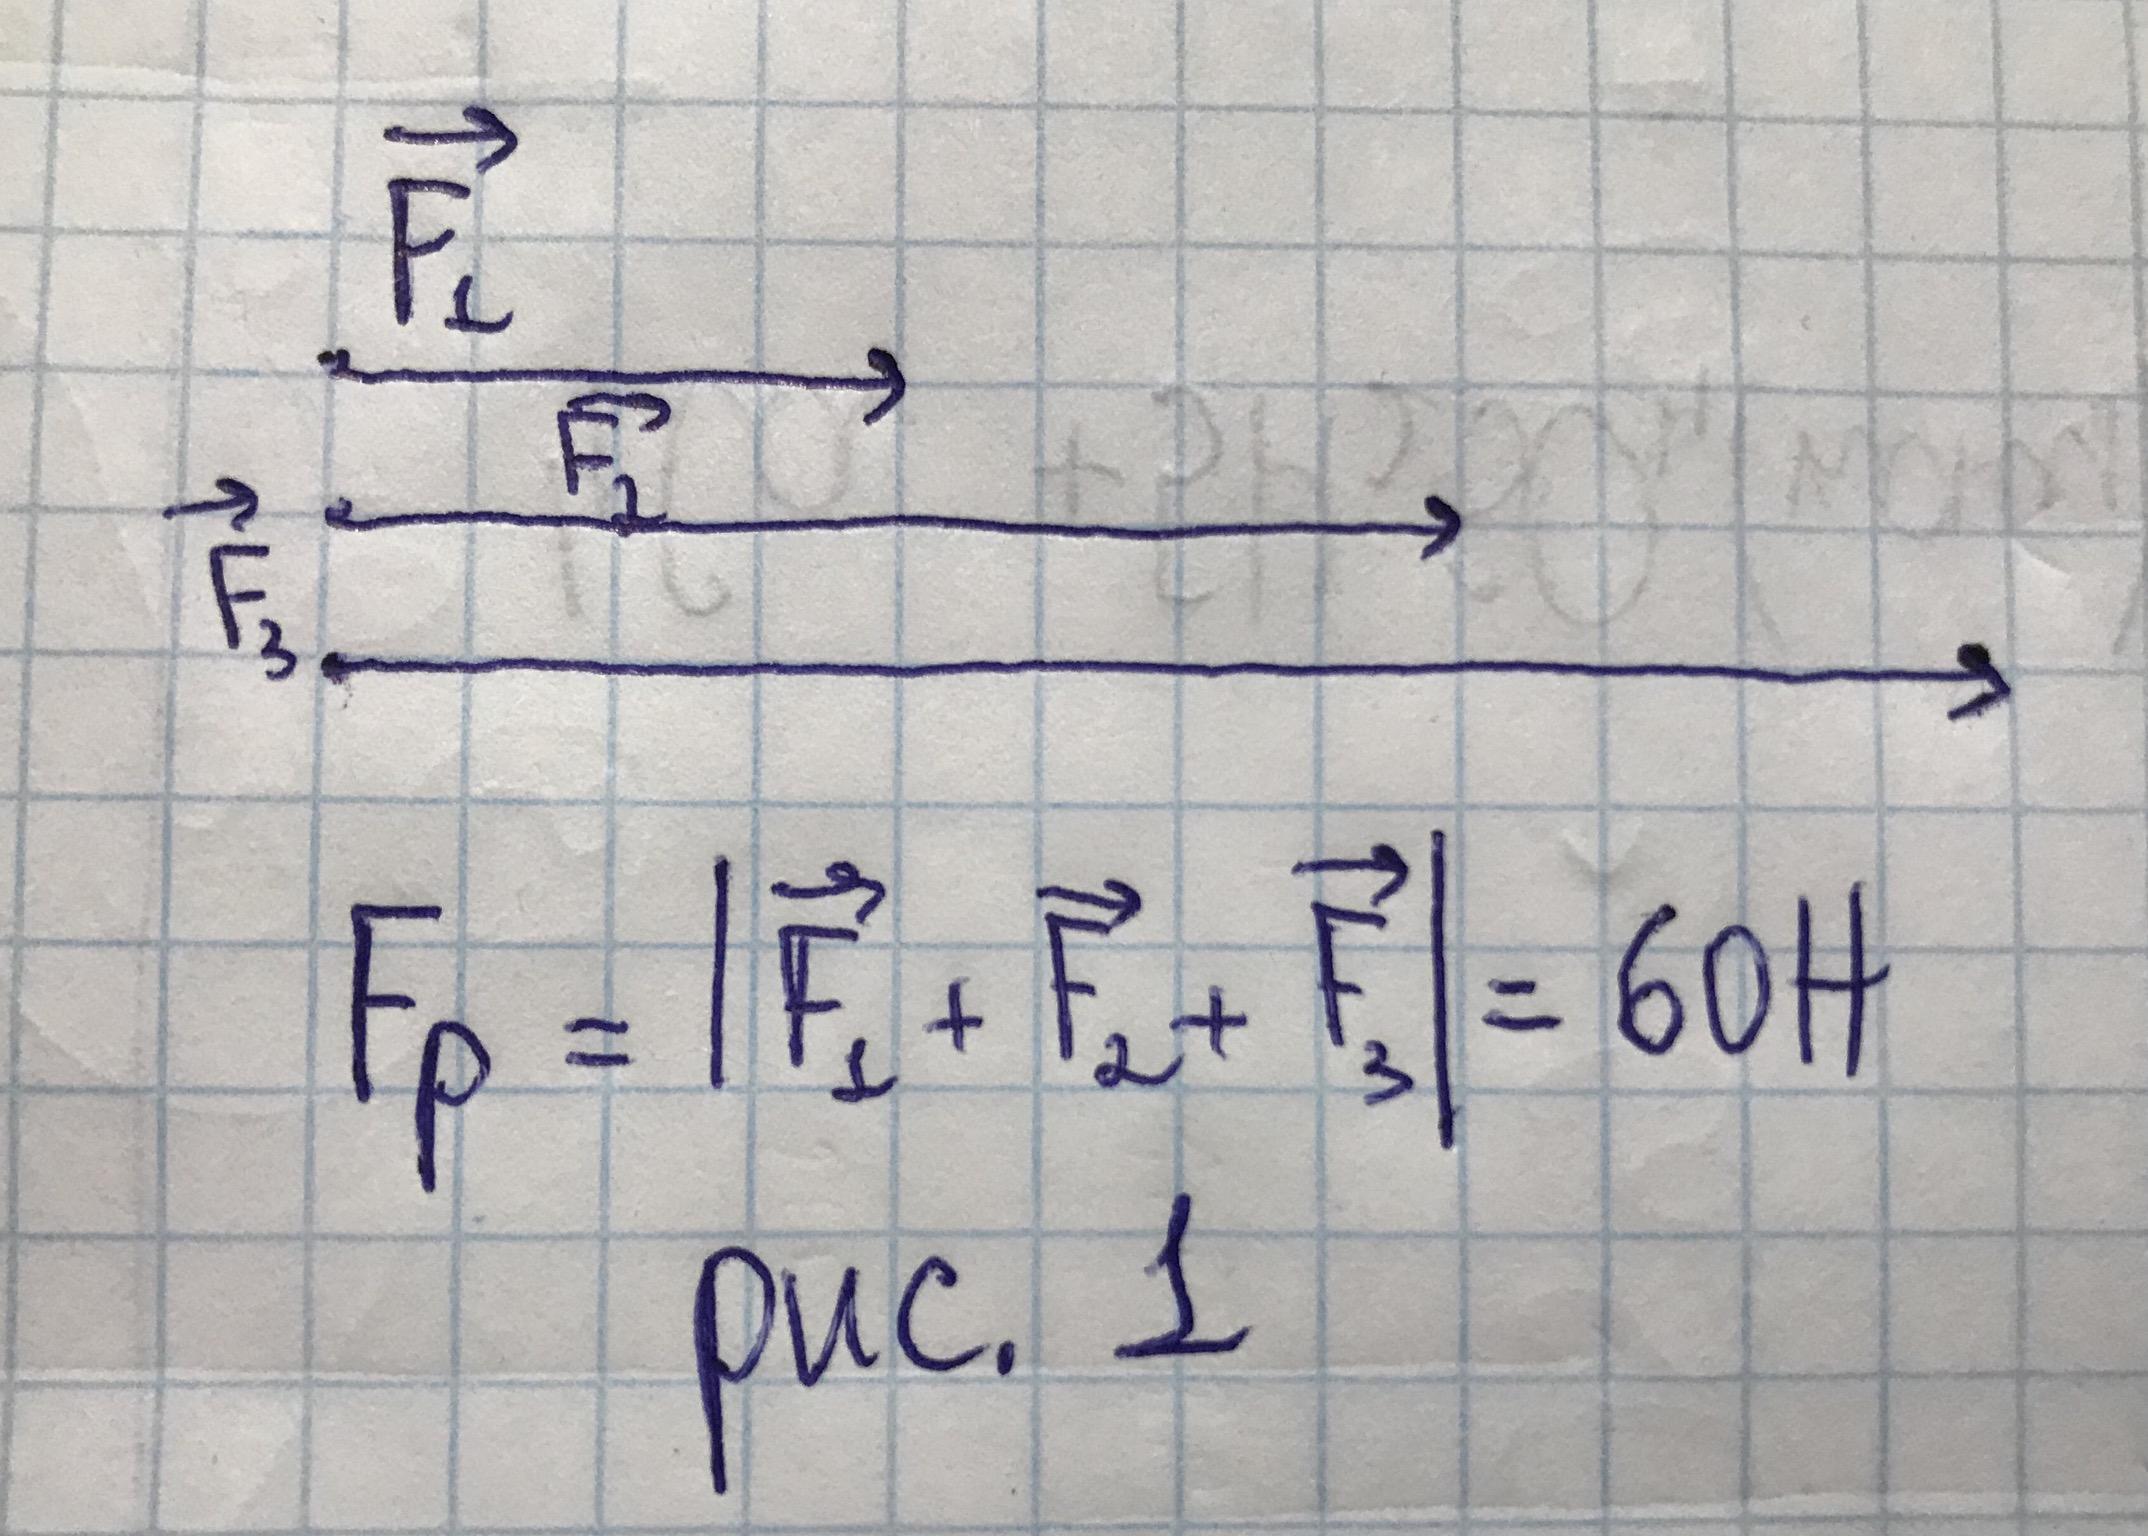 F₁
F₂
F₃
Fр = |F₁ + F₂ + F₃| = 60Н
рис. 1